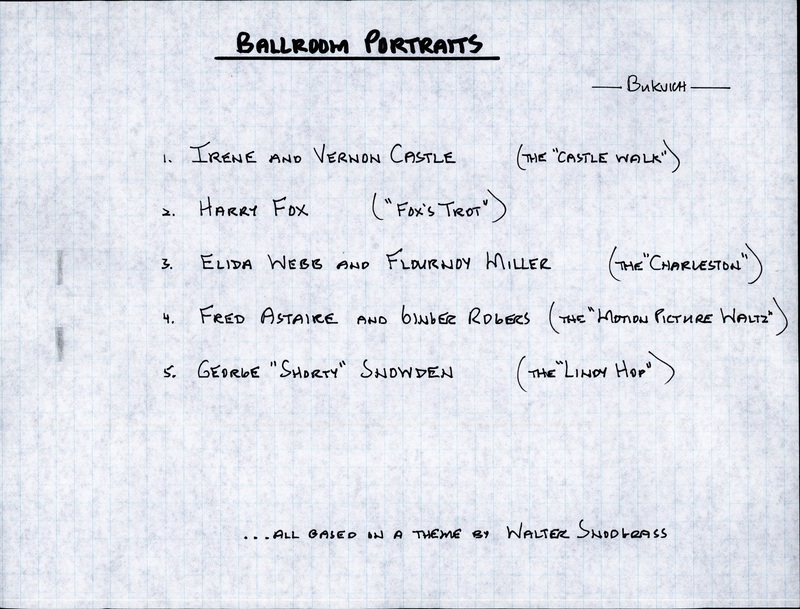 BALLROOM PORTRAITS
— BUKVICH —
1. IRENE AND VERNON CASTLE (THE "CASTLE WALK")
2. HARRY FOX ("FOX'S TROT")
3. ELIDA WEBB AND FLOURNOY MILLER (THE "CHARLESTON")
4. FRED ASTAIRE AND GINGER ROGERS (THE "MOTION PICTURE WALTZ")
5. GEORGE "SHORTY" SNOWDEN (THE "LINDY HOP")
...ALL BASED ON A THEME BY WALTER SNODGRASS